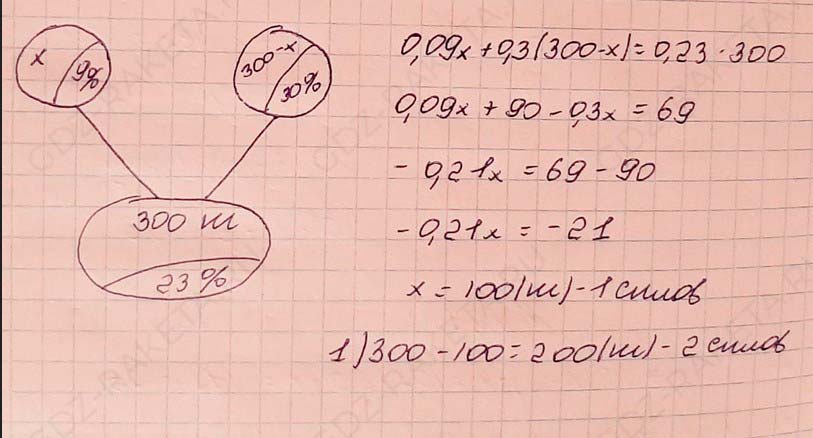 x 9%
300-x 30%
300 кг
23%
0,09x + 0,3(300-x) = 0,23 · 300
0,09x + 90 - 0,3x = 69
- 0,21x = 69 - 90
- 0,21x = -21
x = 100(кг) - 1 сплав
1) 300 - 100 = 200(кг) - 2 сплав
GDZ-RAKETA.RU